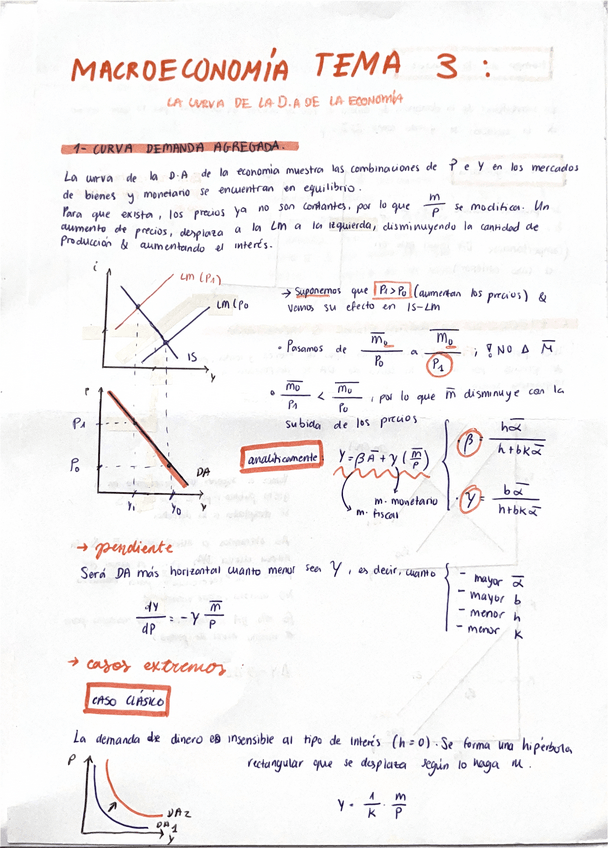 MACROECONOMÍA TEMA 3 :
LA CURVA DE LA D.A DE LA ECONOMÍA
1- CURVA DEMANDA AGREGADA.
La curva de la D.A de la economía muestra las combinaciones de P e Y en los mercados
de bienes y monetario se encuentran en equilibrio.
Para que exista, los precios ya no son contantes, por lo que m/P se modifica. Un
aumento de precios, desplaza a la LM a la izquierda, disminuyendo la cantidad de
Producción & aumentando el interés.
i
LM (P1)
LM (P0
IS
Y
→ Suponemos que P1 > P0 (aumentan los precios) &
vemos su efecto en IS-LM
• Pasamos de m̅0/P0 a m̅0/P1 ; ! NO Δ M̅
• m̅0/P1 < m̅0/P0 , por lo que m̅ disminuye con la
subida de los precios
P
P1
P0
DA
Y1 Y0
analíticamente: Y = βA̅ + γ (m̅/P)
m. monetario
m. fiscal
• β = hα̅ / h + bkα̅
• γ = bα̅ / h + bkα̅
→ pendiente
Será DA más horizontal cuanto menor sea γ, es decir, cuanto
- mayor α̅
- mayor b
- menor h
- menor k
dY/dP = - γ m̅/P
→ casos extremos :
CASO CLÁSICO
La demanda de dinero es insensible al tipo de interés (h=0). Se forma una hipérbola
rectangular que se desplaza según lo haga m.
P
DA2
DA1
Y
Y = 1/k · m/P